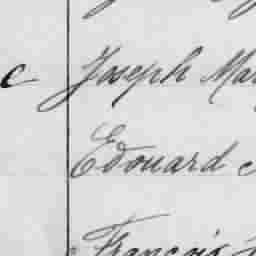 c Joseph Ma
Edouard
François